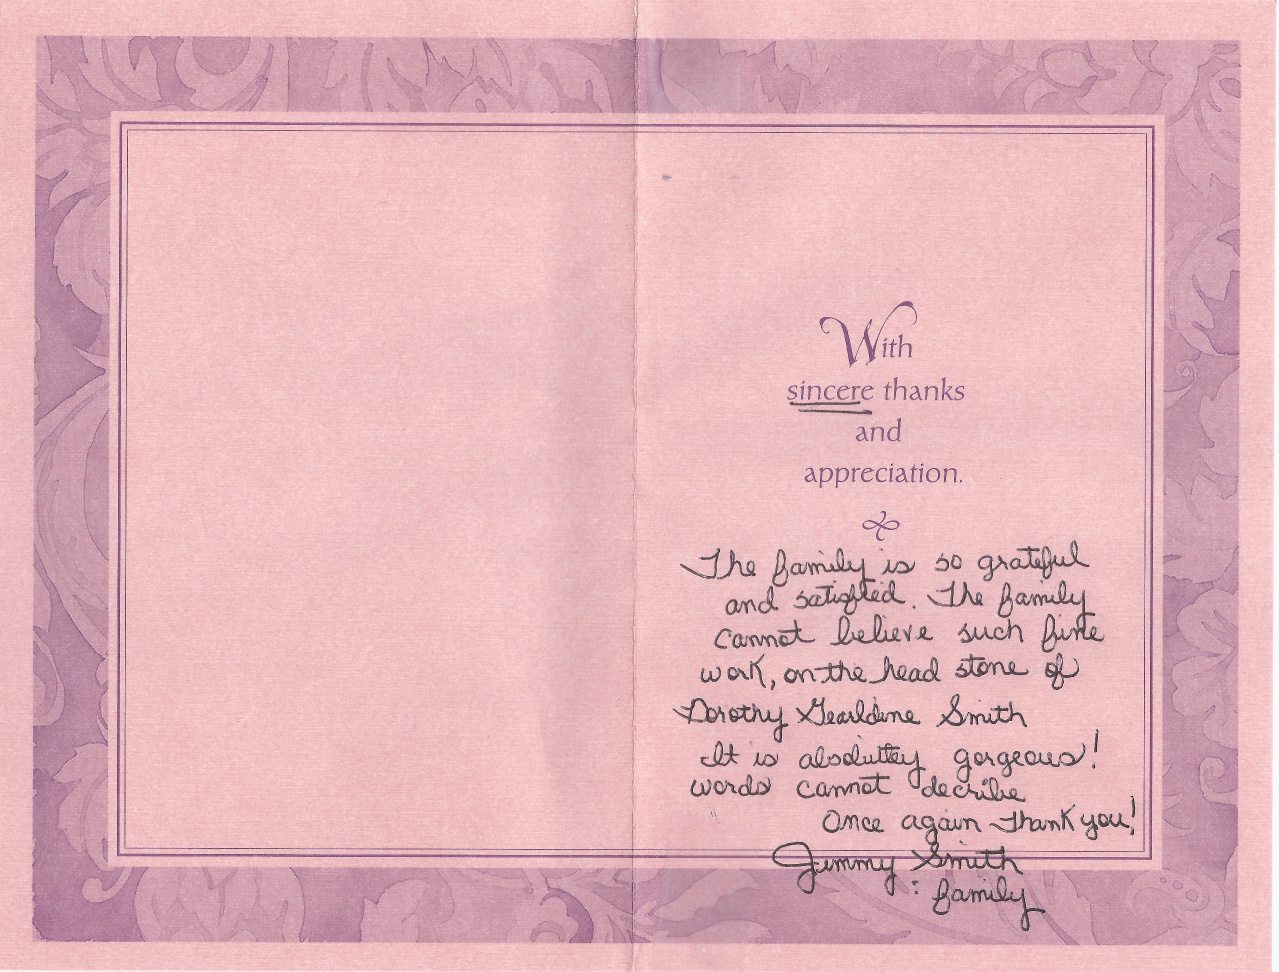 With
sincere thanks
and
appreciation.
The family is so grateful
and satisfied. The family
cannot believe such fine
work, on the head stone of
Dorothy Gearldine Smith
It is absoluttey gorgeous!
words cannot decribe
Once again Thank you!
Jimmy Smith
: family